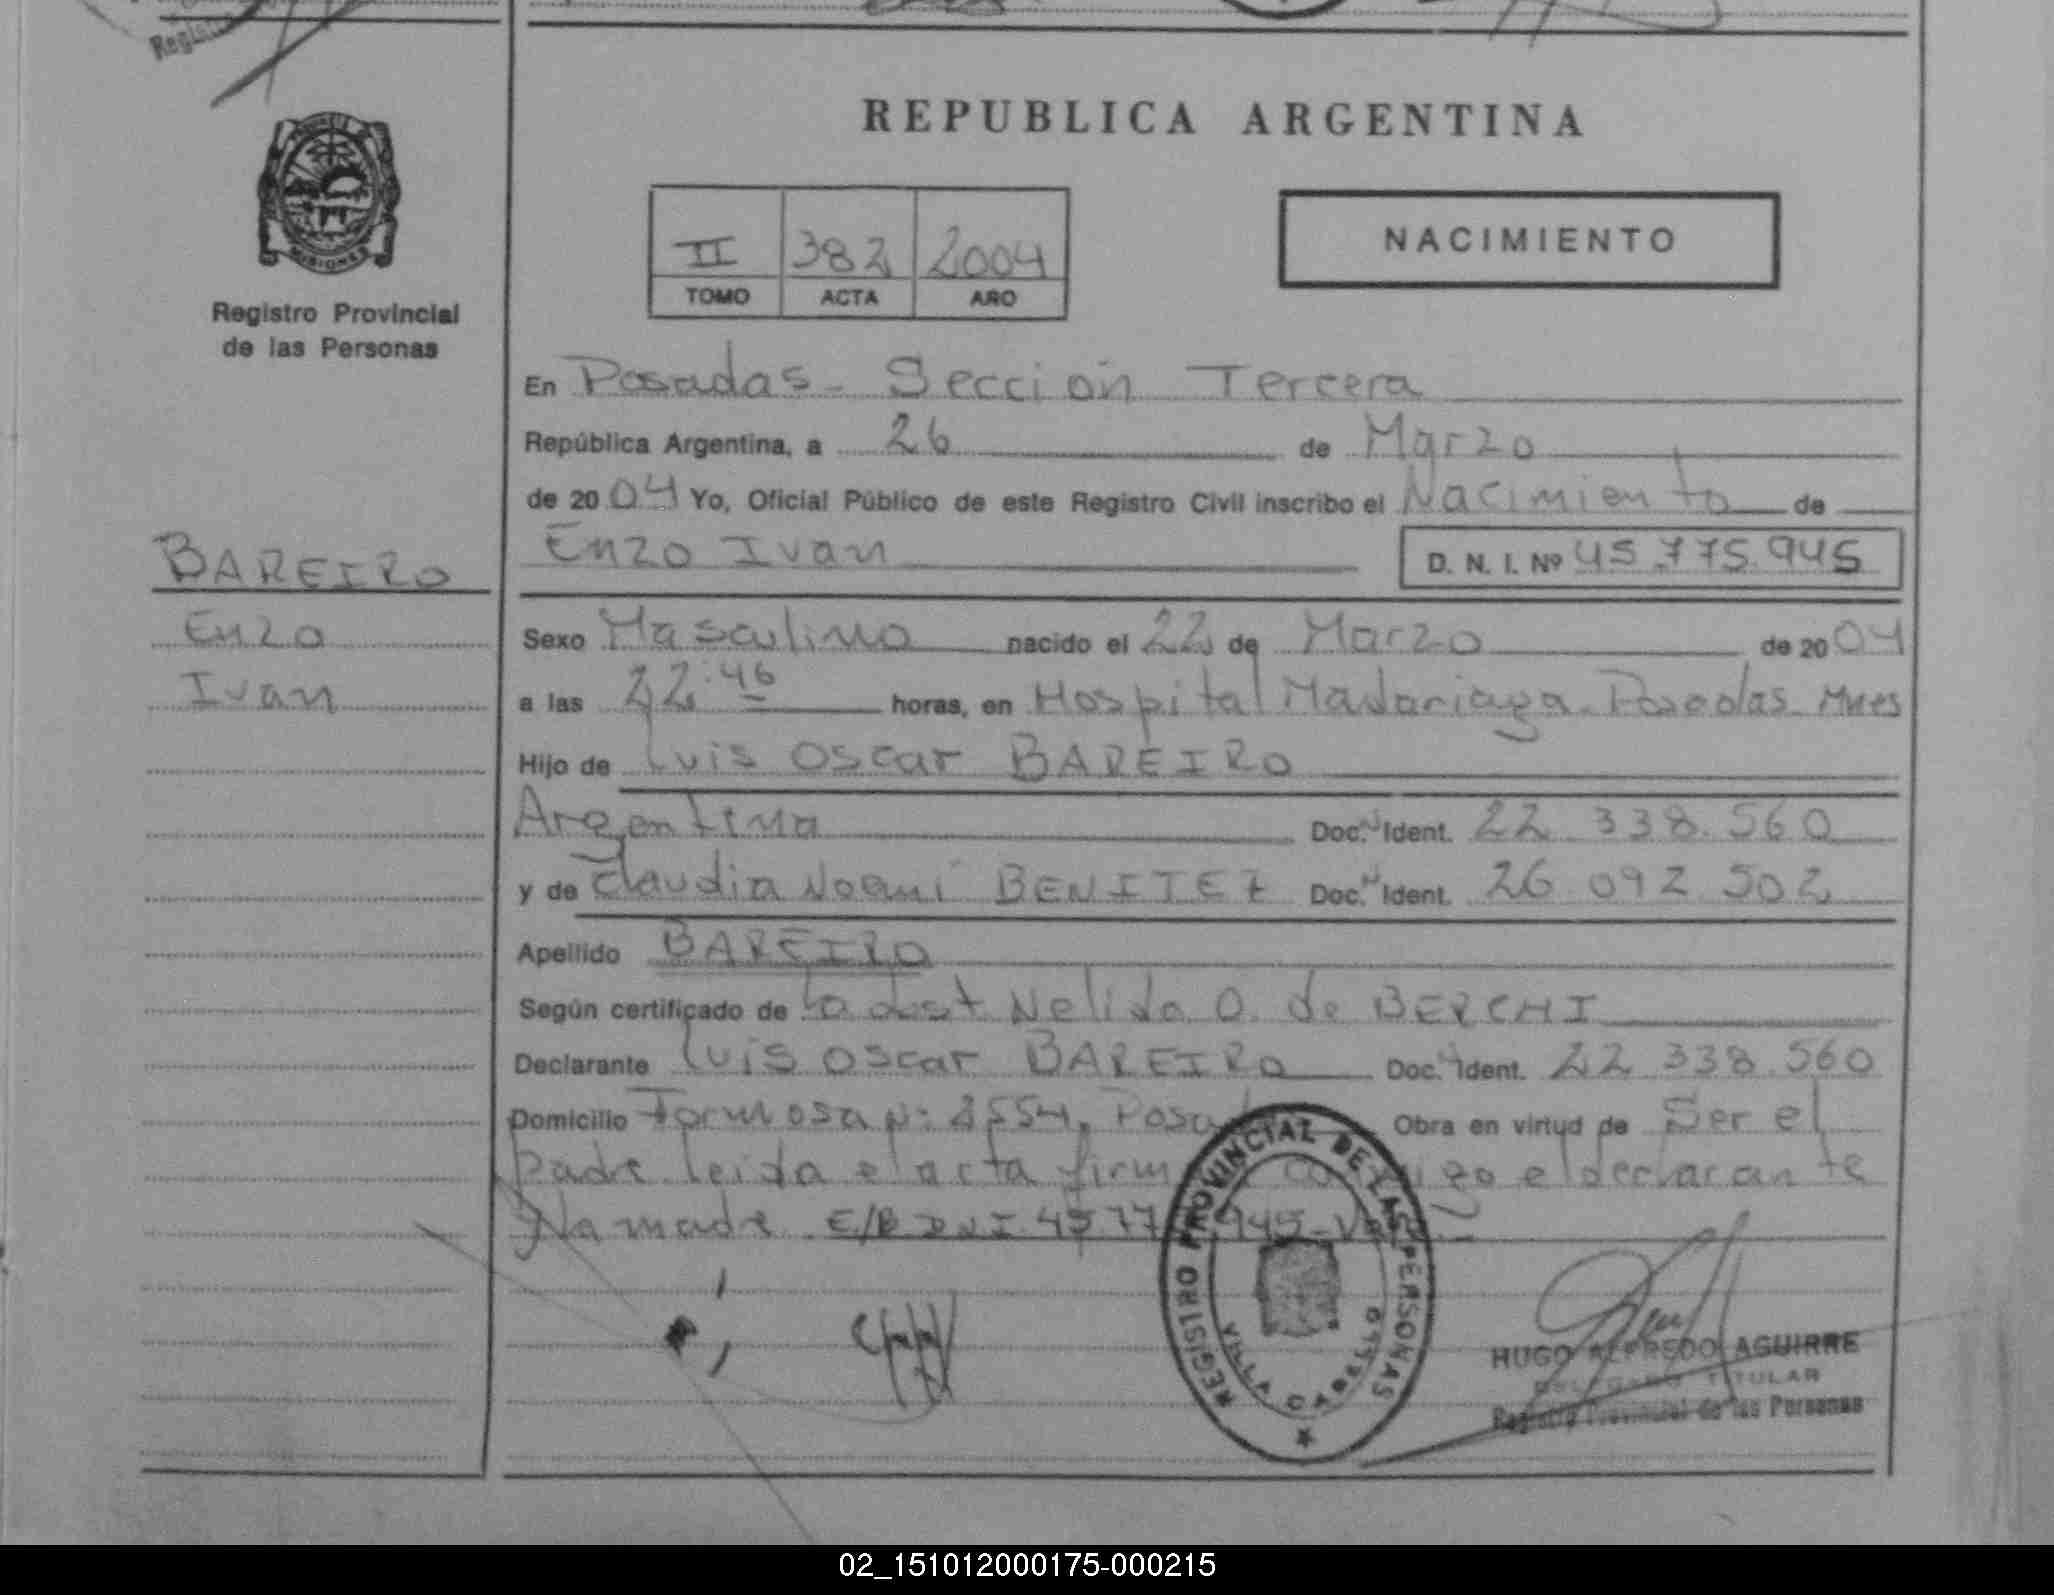 REPUBLICA ARGENTINA
PROVINCIA DE
MISIONES
Registro Provincial
de las Personas
II 382 2004
TOMO ACTA AÑO
NACIMIENTO
En Posadas - Sección Tercera
República Argentina, a 26 de Marzo
de 2004 Yo, Oficial Público de este Registro Civil inscribo el Nacimiento de
Enzo Ivan D. N. I. Nº 45.775.945
BAREIRO
Enzo
Ivan
Sexo Masculino nacido el 22 de Marzo de 2004
a las 22:46 horas, en Hospital Madariaga - Posadas Mnes
Hijo de Luis Oscar BAREIRO
Argentina Doc. Ident. 22 338.560
y de Claudia Noemí BENITEZ Doc. Ident. 26 092 502
Apellido BAREIRO
Según certificado de la obst Nelida O. de BERCHI
Declarante Luis Oscar BAREIRO Doc. Ident. 22 338.560
Domicilio Formosa Nº 2554, Obra en virtud de Ser el
padre leida el acta el declarante
y la madre E/B DNI
REGISTRO PROVINCIAL DE LAS PERSONAS
VILLA CABELLO
HUGO ALFREDO AGUIRRE
DELEGADO TITULAR
Registro Provincial de las Personas
02_151012000175-000215